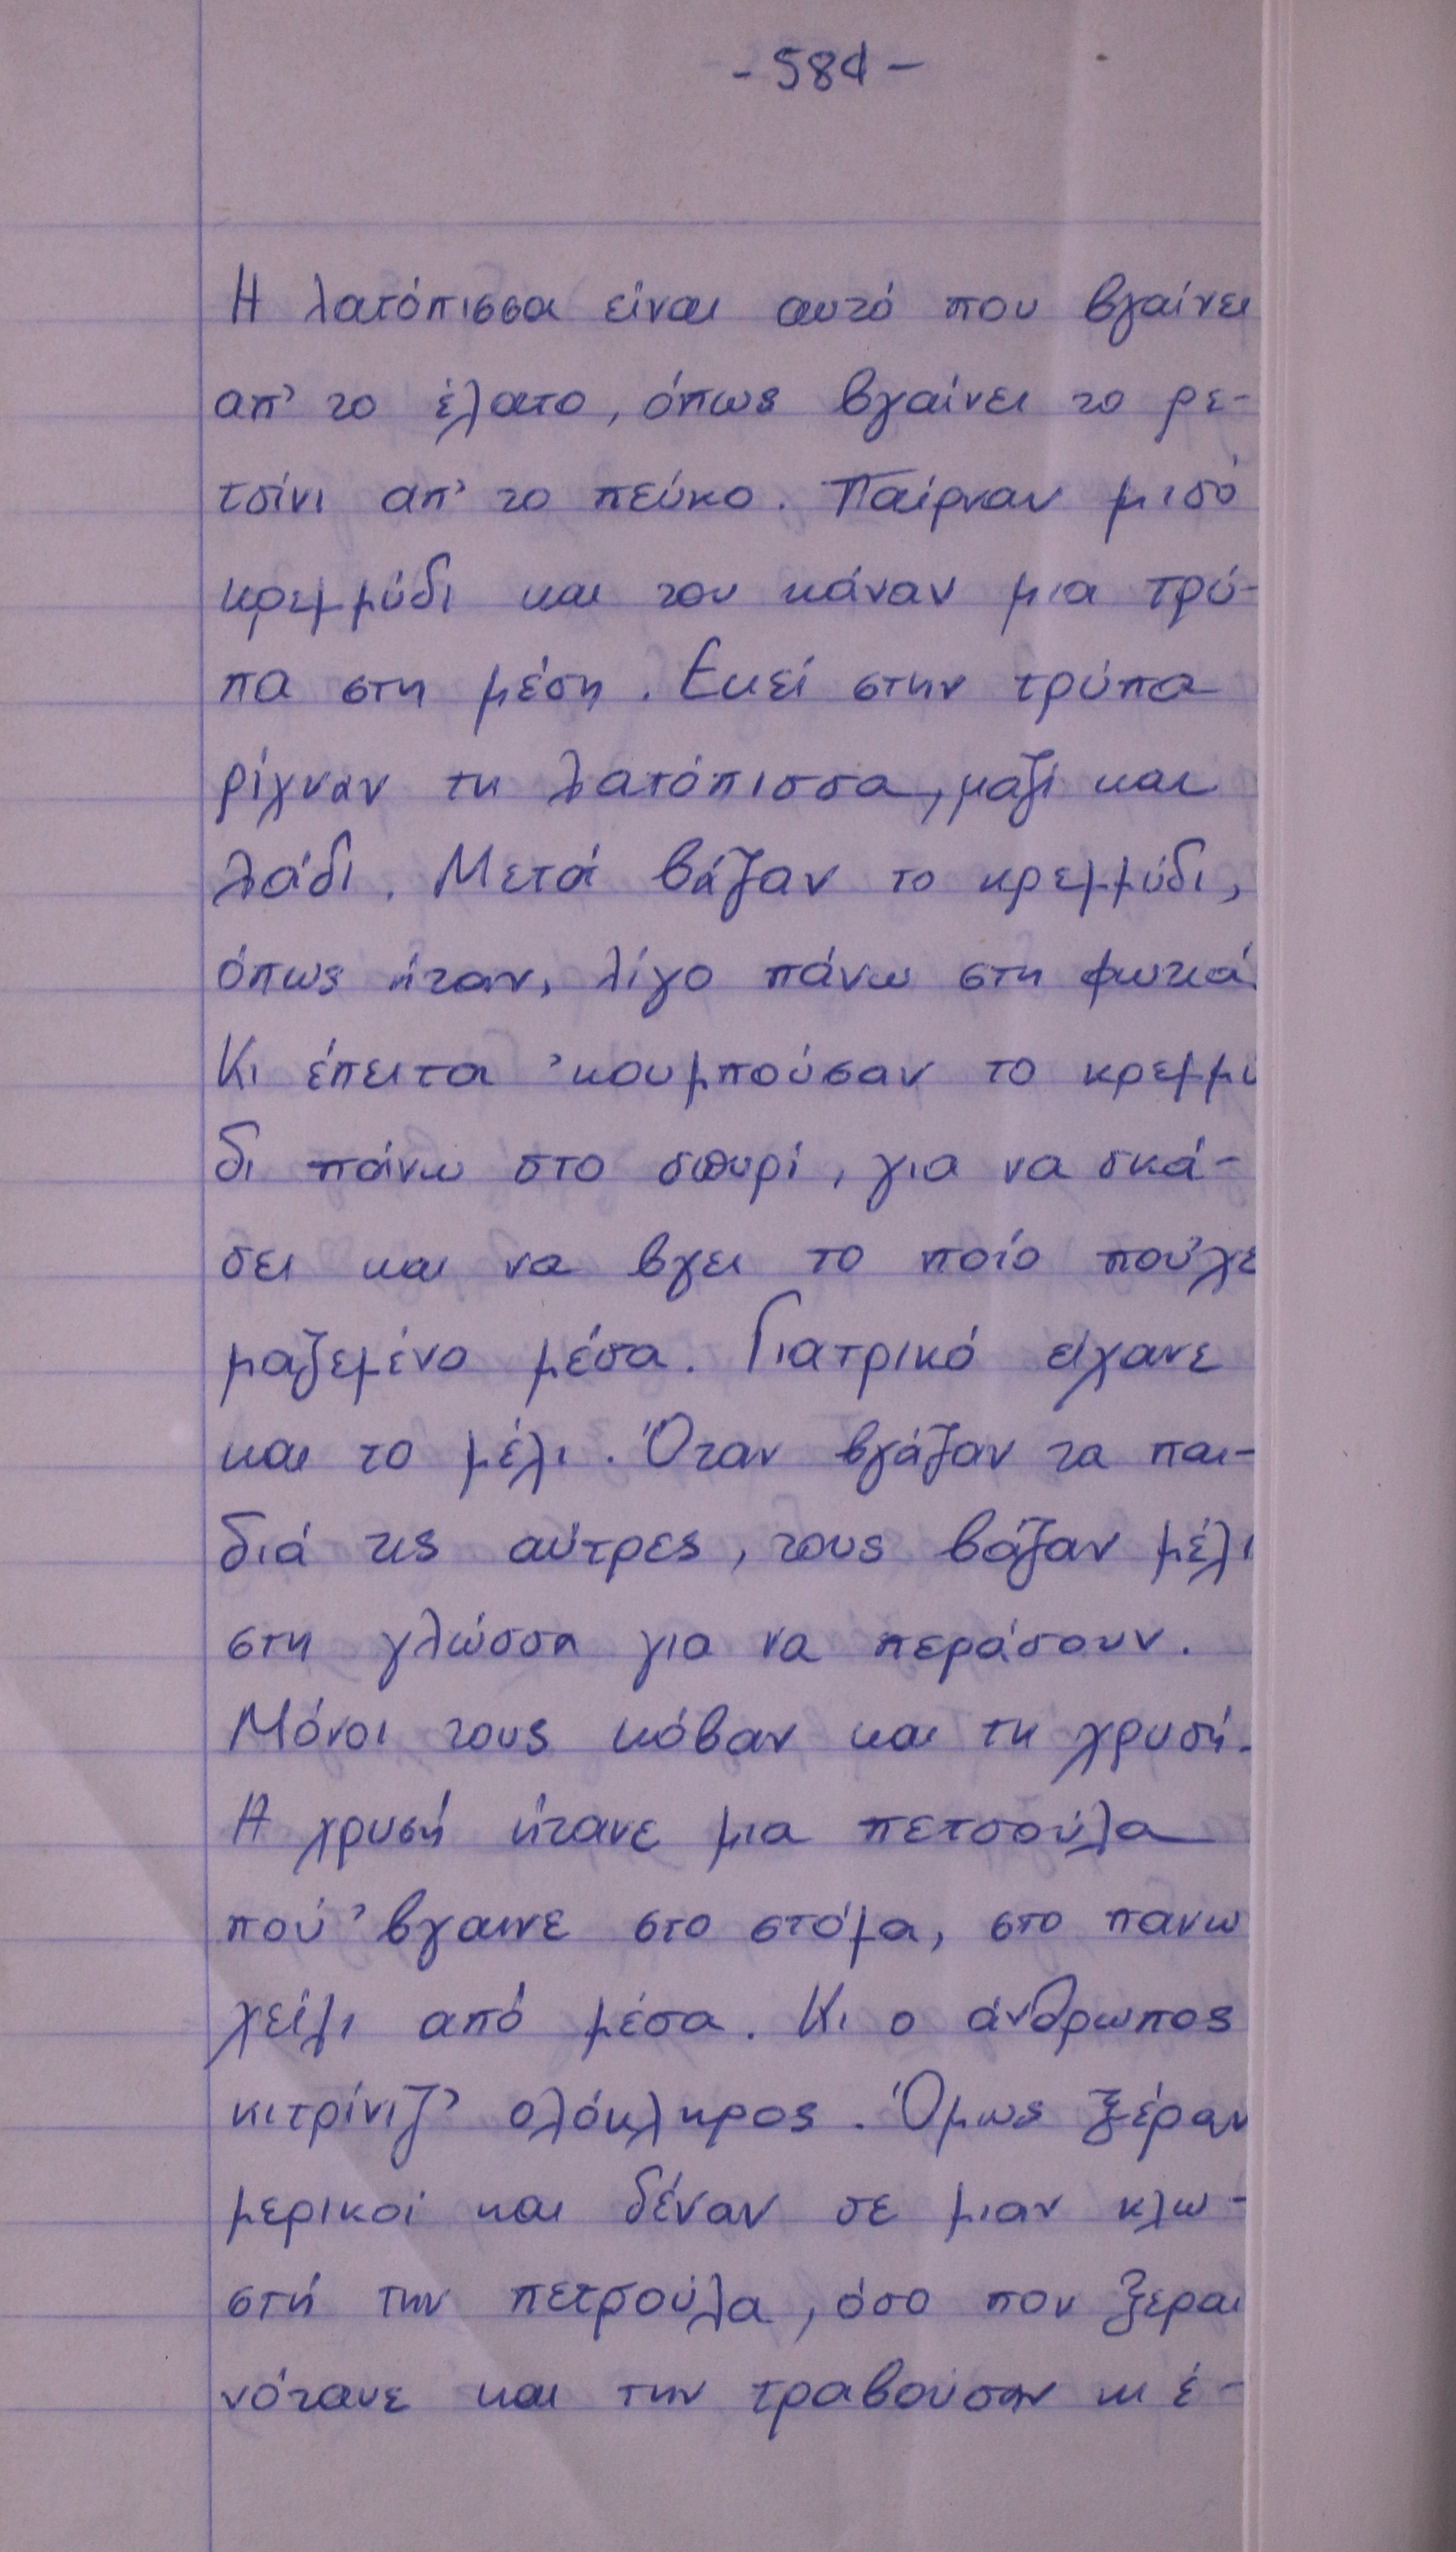 - 584 -
Η λατόπισσα είναι αυτό που βγαίνει
απ' το έλατο, όπως βγαίνει το ρε-
τσίνι απ' το πεύκο. Παίρναν μισό
κρεμμύδι και του κάναν μια τρύ-
πα στη μέση. Εκεί στην τρύπα
ρίχναν τη λατόπισσα, μαζί και
λάδι. Μετά βάζαν το κρεμμύδι,
όπως ήταν, λίγο πάνω στη φωτιά.
Κι έπειτα 'κουμπούσαν το κρεμμύ
δι πάνω στο σπυρί, για να σκά-
σει και να βγει το ποίο πούχε
μαζεμένο μέσα. Γιατρικό είχανε
και το μέλι. Όταν βγάζαν τα παι-
διά τις αύτρες, τους βάζαν μέλι
στη γλώσσα για να περάσουν.
Μόνοι τους κόβαν και τη χρυσή.
Η χρυσή ήτανε μια πετσούλα
πού 'βγαινε στο στόμα, στο πανω
χείλι από μέσα. Κι ο άνθρωπος
κιτρίνιζ' ολόκληρος. Όμως ξέραν
μερικοί και δέναν σε μιαν κλω-
στή την πετσούλα, όσο που ξεραι
νότανε και την τραβούσαν κι έ-